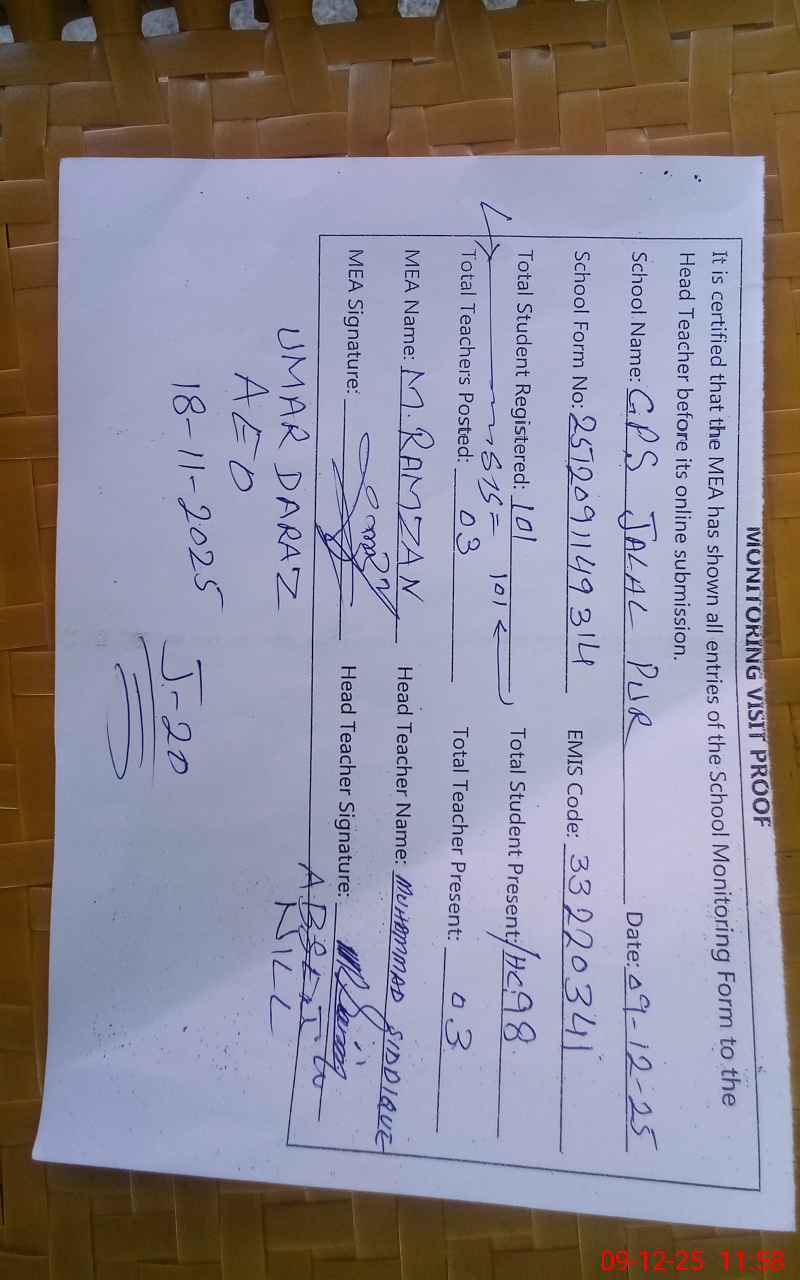 MONITORING VISIT PROOF
It is certified that the MEA has shown all entries of the School Monitoring Form to the
Head Teacher before its online submission.
School Name: GPS JALAL PUR Date: 09-12-25
School Form No: 2512091149314 EMIS Code: 33220341
Total Student Registered: 101 Total Student Present: /HC 98
SIS = 101
Total Teachers Posted: 03 Total Teacher Present: 03
MEA Name: M. RAMZAN Head Teacher Name: MUHAMMAD SIDDIQUE
MEA Signature: Head Teacher Signature:
UMAR DARAZ
AEO
NILL
18-11-2025
J-20
09-12-25 11:58